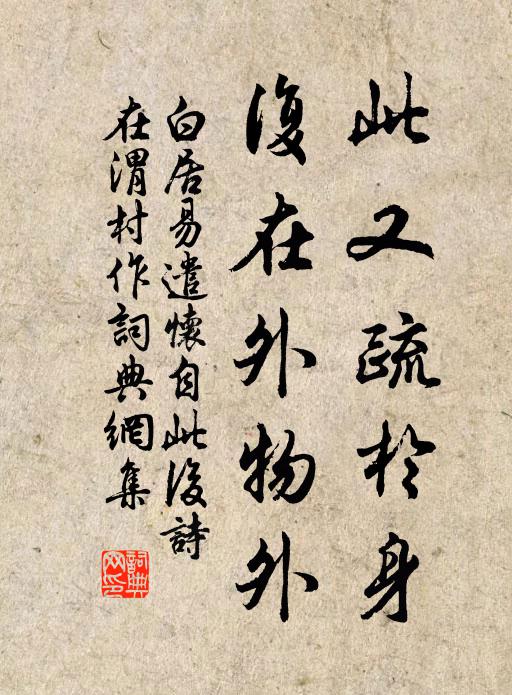 此又疏於身
復在外物外
白居易遣懷自此後詩
在渭村作詞典網集
詞典
网印